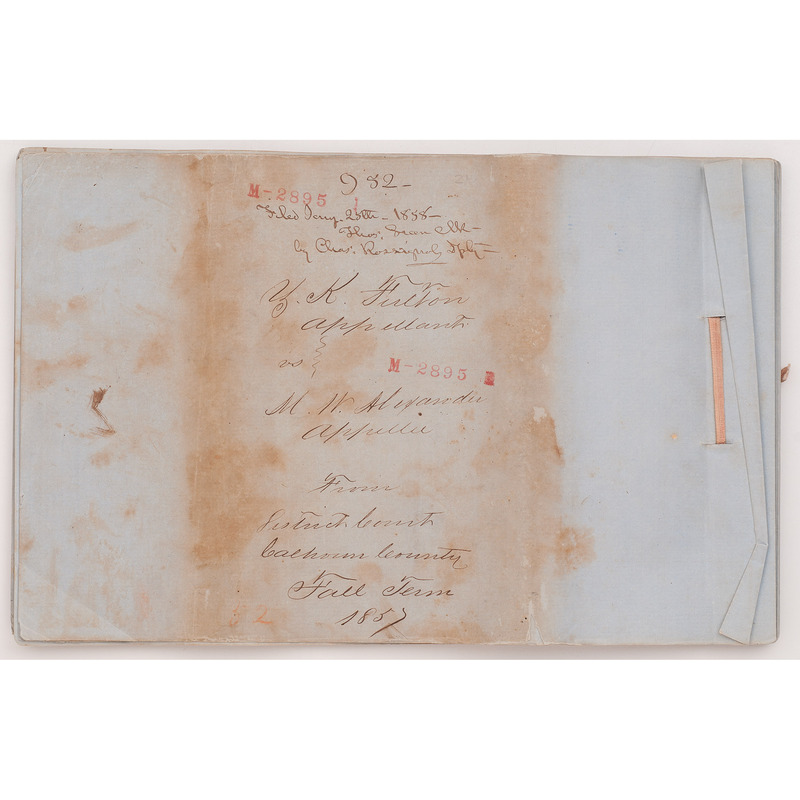 932-
M-2895 1
Filed Jany. 25th - 1858-
Thos. Green Clk-
by Chas. Rossignol, Dpty-
Y. K. Fulton
Appellant
vs
M-2895
M. W. Alexander
Appellee
From
District Court
Calhoun County
Fall Term
1857